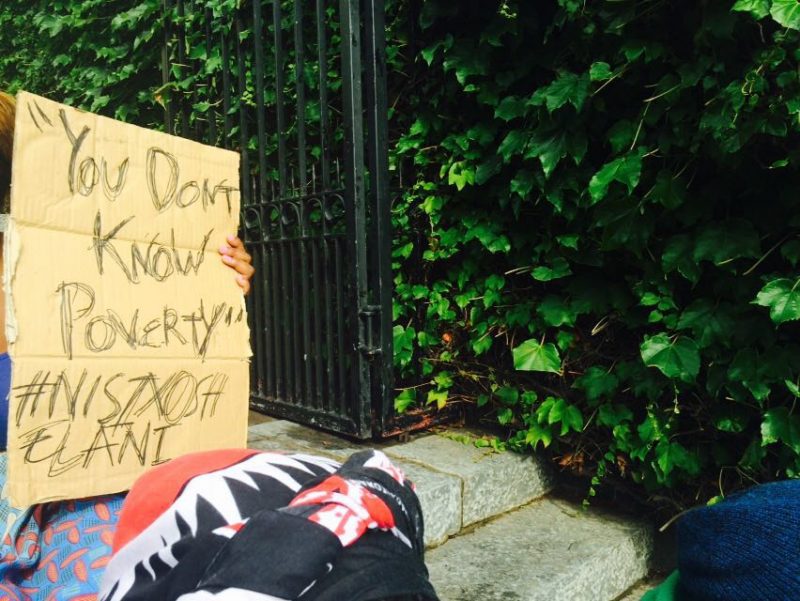 "You Dont
Know
Poverty"
#NISIXOSH
ELANI